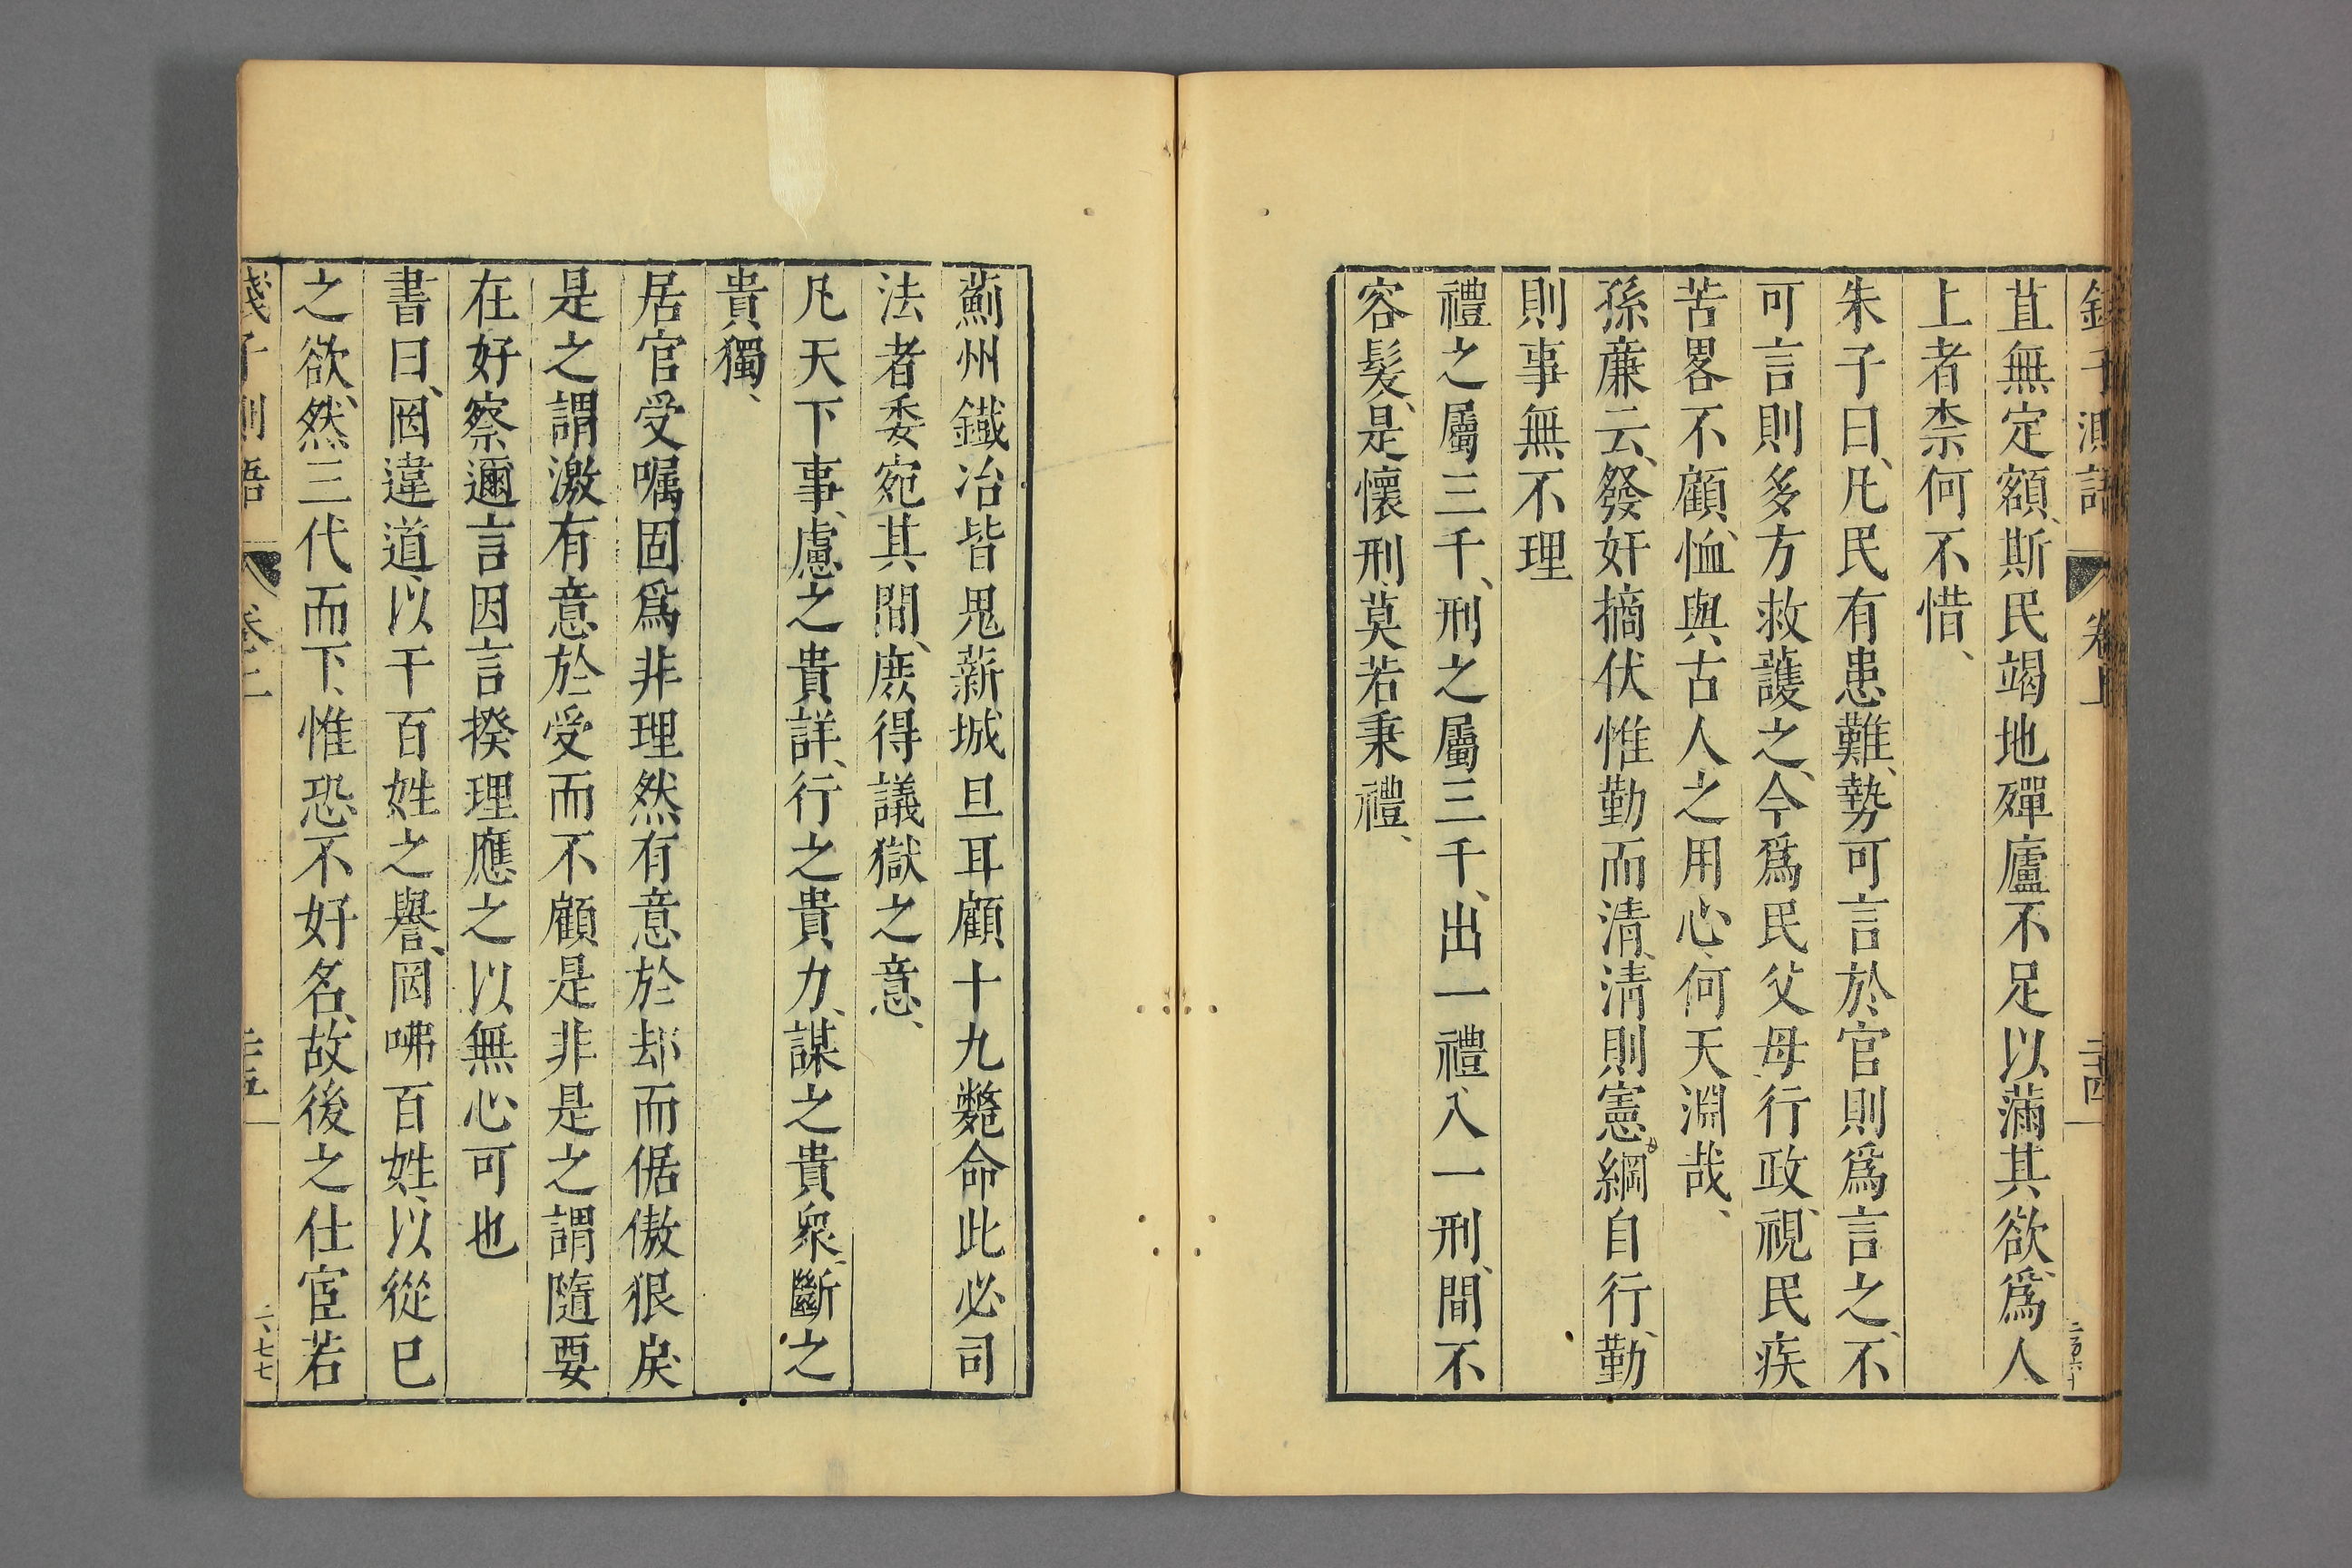 錢子測語 卷上 三十四 二百六十
苴無定額、斯民竭地殫廬不足以滿其欲、爲人
上者柰何不惜、
朱子曰、凡民有患難、勢可言於官則爲言之、不
可言則多方救護之、今爲民父母行政、視民疾
苦畧不顧恤、與古人之用心、何天淵哉、
孫亷云、發奸摘伏惟勤而清、清則憲綱自行、勤
則事無不理
禮之屬三千、刑之屬三千、出一禮、入一刑、間不
容髮、是懷刑莫若秉禮、
薊州鐵冶皆鬼薪城旦耳顧十九斃命此必司
法者委宛其間、庶得議獄之意、
凡天下事、慮之貴詳、行之貴力、謀之貴衆、斷之
貴獨、
居官受囑固爲非理然有意於却而倨傲狠戾
是之謂激有意於受而不顧是非是之謂隨要
在好察邇言因言揆理應之以無心可也
書曰、罔違道、以干百姓之譽、罔咈百姓、以從已
之欲、然三代而下、惟恐不好名、故後之仕宦若
錢子測語 卷上 三十五 二、七七